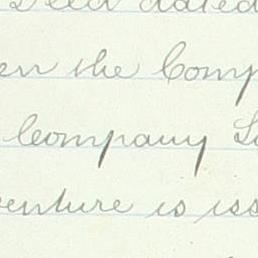 Deed dated
en the Comp
Company L
enture is iss